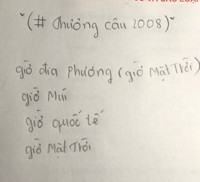 "(# Chương câu 2008)"
giờ địa Phương (giờ Mặt Trời)
giờ Múi
giờ quốc tế
giờ Mặt Trời